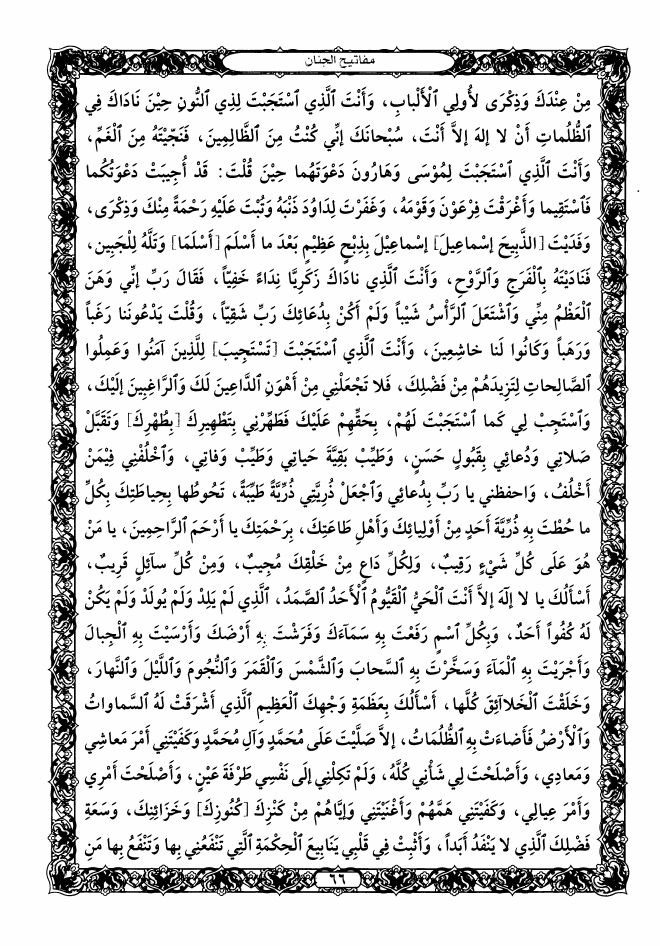 مفاتيح الجنان
مِنْ عِنْدَكَ وَذِكْرَى لأُولِي ٱلْأَلْبابِ، وَأَنْتَ ٱلَّذِي ٱسْتَجَبْتَ لِذِي ٱلنُّونِ حِيْنَ نَادَاكَ فِي
ٱلظُّلُمَاتِ أَنْ لا إِلهَ إِلاَّ أَنْتَ، سُبْحانَكَ إِنِّي كُنْتُ مِنَ ٱلظَّالِمِينَ، فَنَجَّيْتَهُ مِنَ ٱلْغَمِّ،
وَأَنْتَ ٱلَّذِي ٱسْتَجَبْتَ لِمُوْسَى وَهَارُونَ دَعْوَتَهُما حِيْنَ قُلْتَ: قَدْ أُجِيبَتْ دَعْوَتُكُما
فَٱسْتَقِيما وَأَغْرَقْتَ فِرْعَوْنَ وَقَوْمَهُ، وَغَفَرْتَ لِدَاوُدَ ذَنْبَهُ وَتُبْتَ عَلَيْهِ رَحْمَةً مِنْكَ وَذِكْرَى،
وَفَدَيْتَ [الذَّبِيحَ إِسْماعِيلَ] إِسْماعِيْلَ بِذِبْحٍ عَظِيْمٍ بَعْدَ ما أَسْلَمَ [أَسْلَمَا] وَتَلَّهُ لِلْجَبِينِ،
فَنَادَيْتَهُ بِٱلْفَرَجِ وَٱلرَّوْحِ، وَأَنْتَ ٱلَّذِي نادَاكَ زَكَرِيَّا نِدَاءً خَفِيّاً، فَقَالَ رَبِّ إِنِّي وَهَنَ
ٱلْعَظْمُ مِنِّي وَٱشْتَعَلَ ٱلرَّأْسُ شَيْباً وَلَمْ أَكُنْ بِدُعَائِكَ رَبِّ شَقِيّاً، وَقُلْتَ يَدْعُونَنا رَغَباً
وَرَهَباً وَكَانُوا لَنا خاشِعِينَ، وَأَنْتَ ٱلَّذِي ٱسْتَجَبْتَ [تَسْتَجِيبَ] لِلَّذِينَ آمَنُوا وَعَمِلُوا
ٱلصَّالِحاتِ لِتَزِيدَهُمْ مِنْ فَضْلِكَ، فَلا تَجْعَلْنِي مِنْ أَهْوَنِ ٱلدَّاعِينَ لَكَ وَٱلرَّاغِبِينَ إِلَيْكَ،
وَٱسْتَجِبْ لِي كَما ٱسْتَجَبْتَ لَهُمْ، بِحَقِّهِمْ عَلَيْكَ فَطَهِّرْنِي بِتَطْهِيرِكَ [بِطُهْرِكَ] وَتَقَبَّلْ
صَلاتِي وَدُعائِي بِقَبُولٍ حَسَنٍ، وَطَيِّبْ بَقِيَّةَ حَياتِي وَطَيِّبْ وَفاتِي، وَٱخْلُفْنِي فِيْمَنْ
أَخْلُفُ، وَاحفظنِي يا رَبِّ بِدُعائِي وَٱجْعَلْ ذُرِّيَّتِي ذُرِّيَّةً طَيِّبَةً، تَحُوطُها بِحِياطَتِكَ بِكُلِّ
ما حُطْتَ بِهِ ذُرِّيَّةَ أَحَدٍ مِنْ أَوْلِيائِكَ وَأَهْلِ طَاعَتِكَ، بِرَحْمَتِكَ يا أَرْحَمَ ٱلرَّاحِمِينَ، يا مَنْ
هُوَ عَلَى كُلِّ شَيْءٍ رَقِيبٌ، وَلِكُلِّ دَاعٍ مِنْ خَلْقِكَ مُجِيبٌ، وَمِنْ كُلِّ سآئِلٍ قَرِيبٌ،
أَسْأَلُكَ يا لا إِلَهَ إِلاَّ أَنْتَ ٱلْحَيُّ ٱلْقَيُّومُ ٱلْأَحَدُ ٱلصَّمَدُ، ٱلَّذِي لَمْ يَلِدْ وَلَمْ يُولَدْ وَلَمْ يَكُنْ
لَهُ كُفُواً أَحَدٌ، وَبِكُلِّ ٱسْمٍ رَفَعْتَ بِهِ سَمَآءَكَ وَفَرَشْتَ بِهِ أَرْضَكَ وَأَرْسَيْتَ بِهِ ٱلْجِبالَ
وَأَجْرَيْتَ بِهِ ٱلْمَآءَ وَسَخَّرْتَ بِهِ ٱلسَّحابَ وَٱلشَّمْسَ وَٱلْقَمَرَ وَٱلنُّجُومَ وَٱللَّيْلَ وَٱلنَّهارَ،
وَخَلَقْتَ ٱلْخَلآئِقَ كُلَّها، أَسْأَلُكَ بِعَظَمَةِ وَجْهِكَ ٱلْعَظِيمِ ٱلَّذِي أَشْرَقَتْ لَهُ ٱلسَّماواتُ
وَٱلْأَرْضُ فَأَضاءَتْ بِهِ ٱلظُّلُمَاتُ، إِلاَّ صَلَّيْتَ عَلَى مُحَمَّدٍ وَآلِ مُحَمَّدٍ وَكَفَيْتَنِي أَمْرَ مَعاشِي
وَمَعادِي، وَأَصْلَحْتَ لِي شَأْنِي كُلَّهُ، وَلَمْ تَكِلْنِي إِلَى نَفْسِي طَرْفَةَ عَيْنٍ، وَأَصْلَحْتَ أَمْرِي
وَأَمْرَ عِيالِي، وَكَفَيْتَنِي هَمَّهُمْ وَأَغْنَيْتَنِي وَإِيَّاهُمْ مِنْ كَنْزِكَ [كُنُوزِكَ] وَخَزَائِنِكَ، وَسَعَةِ
فَضْلِكَ ٱلَّذِي لا يَنْفَدُ أَبَداً، وَأَثْبِتْ فِي قَلْبِي يَنَابِيعَ ٱلْحِكْمَةِ ٱلَّتِي تَنْفَعُنِي بِها وَتَنْفَعُ بِها مَنِ
٦٦